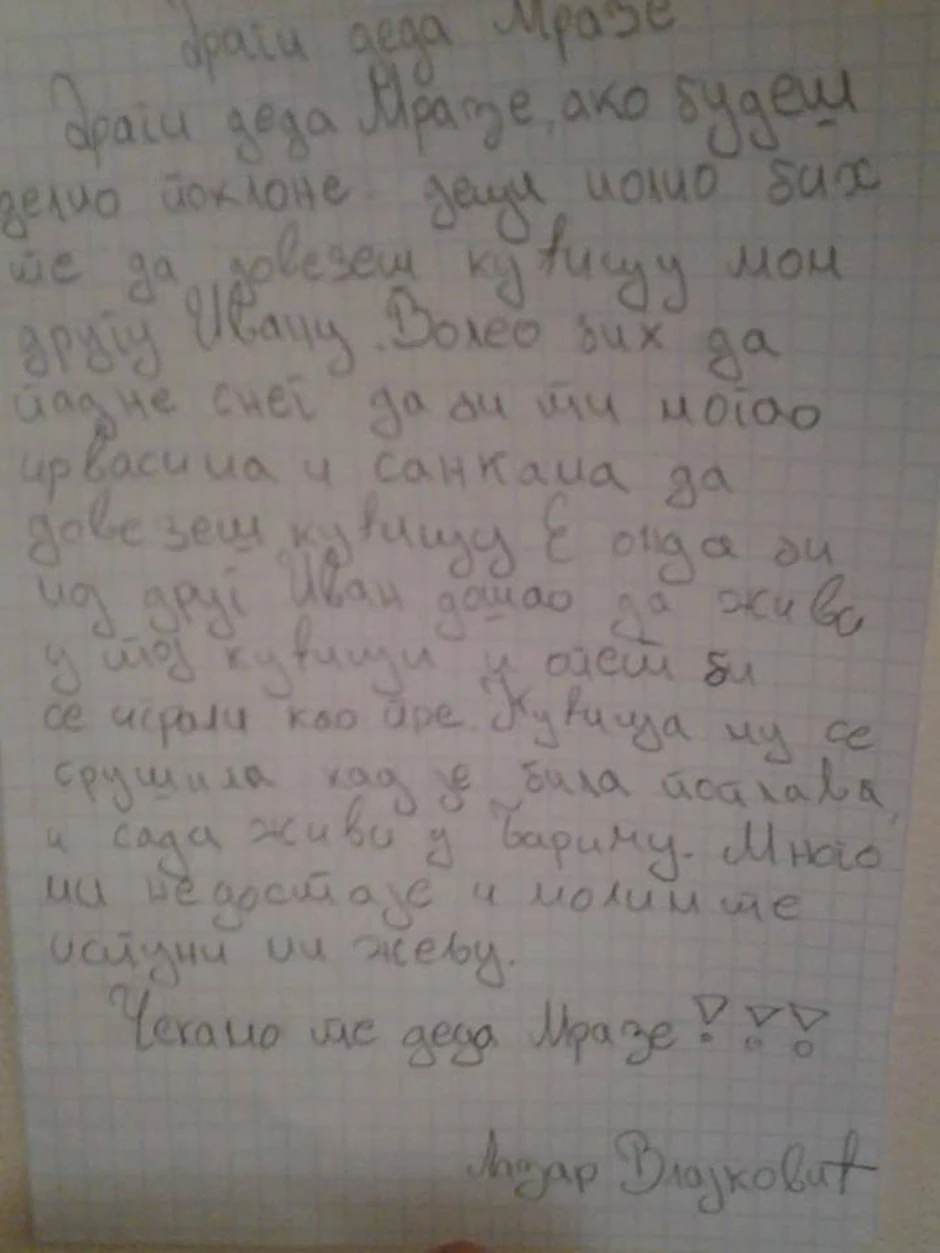 Драги деда Мразе
Драги деда Мразе, ако будеш
делио поклоне деци молио бих
те да довезеш кућицу мом
другу Ивану. Волео бих да
падне снег да би ти могао
ирвасима и санкама да
довезеш кућицу Е онда би
мој друг Иван дошао да живи
у тој кућици и опет би
се играли као пре. Кућица му се
срушила кад је била поплава,
и сада живи у Баричу. Много
ми недостаје и молим те
испуни ми жељу.
Чекамо те деда Мразе!!!
Лазар Влајковић